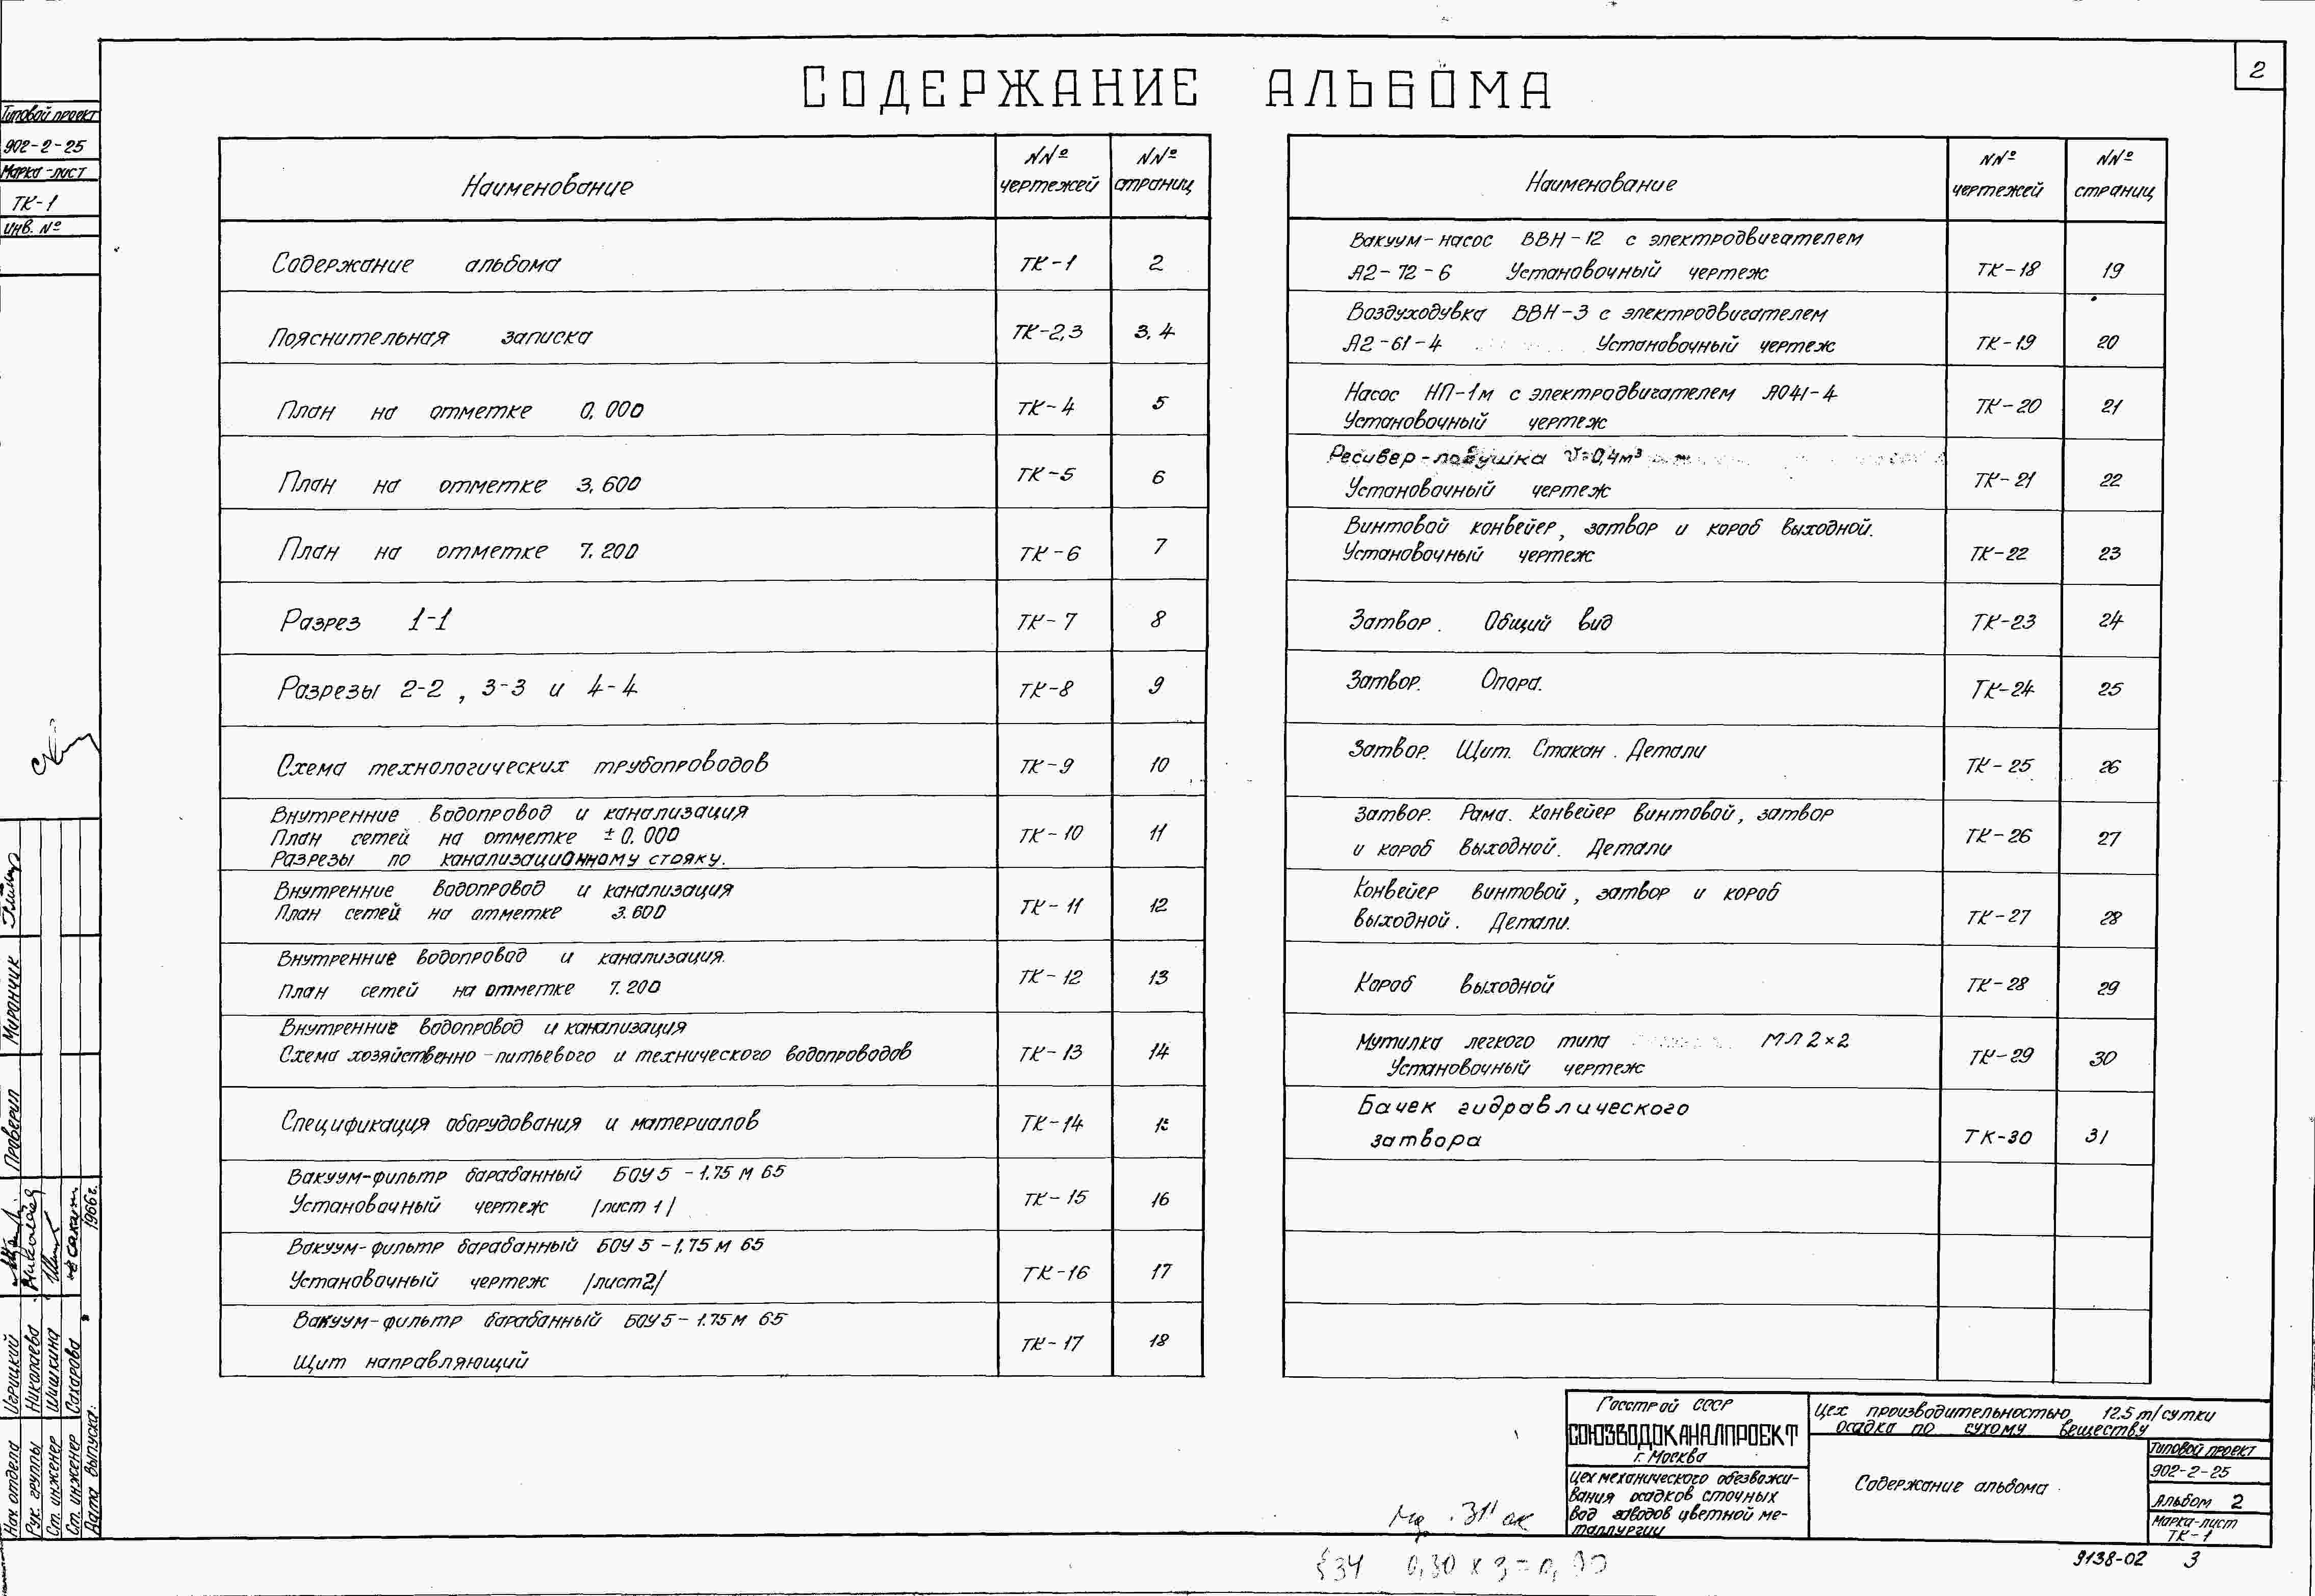 2
СОДЕРЖАНИЕ АЛЬБОМА
Типовой проект
902-2-25
Марка-лист
ТК-1
инв. №
Наименование
NN№ чертежей
NN№ страниц
Содержание альбома ТК-1 2
Пояснительная записка ТК-2,3 3,4
План на отметке 0,000 ТК-4 5
План на отметке 3,600 ТК-5 6
План на отметке 7.200 ТК-6 7
Разрез 1-1 ТК-7 8
Разрезы 2-2, 3-3 и 4-4 ТК-8 9
Схема технологических трубопроводов ТК-9 10
Внутренние водопровод и канализация
План сетей на отметке ±0.000 ТК-10 11
Разрезы по канализационному стояку.
Внутренние водопровод и канализация
План сетей на отметке 3.600 ТК-11 12
Внутренние водопровод и канализация.
План сетей на отметке 7.200 ТК-12 13
Внутренние водопровод и канализация
Схема хозяйственно-питьевого и технического водопроводов ТК-13 14
Спецификация оборудования и материалов ТК-14 15
Вакуум-фильтр барабанный БОУ5-1.75м 65
Установочный чертеж /лист 1/ ТК-15 16
Вакуум-фильтр барабанный БОУ5-1,75м 65
Установочный чертеж /лист2/ ТК-16 17
Вакуум-фильтр барабанный БОУ5-1.75м 65
Щит направляющий ТК-17 18
Наименование
NN№ чертежей
NN№ страниц
Вакуум-насос ВВН-12 с электродвигателем
А2-72-6 Установочный чертеж ТК-18 19
Воздуходувка ВВН-3 с электродвигателем
А2-61-4 Установочный чертеж ТК-19 20
Насос НП-1м с электродвигателем АО41-4
Установочный чертеж ТК-20 21
Ресивер-ловушка V=0,4м³
Установочный чертеж ТК-21 22
Винтовой конвейер, затвор и короб выходной.
Установочный чертеж ТК-22 23
Затвор. Общий вид ТК-23 24
Затвор. Опора. ТК-24 25
Затвор. Щит. Стакан. Детали ТК-25 26
Затвор. Рама. Конвейер винтовой, затвор
и короб выходной. Детали ТК-26 27
Конвейер винтовой, затвор и короб
выходной. Детали. ТК-27 28
Короб выходной ТК-28 29
Мутилка легкого типа МЛ 2×2
Установочный чертеж ТК-29 30
Бачек гидравлического
затвора ТК-30 31
Нач. отдела Игрицкий
Рук. группы Николаева
Ст. инженер Шишкина
Ст. инженер Сахарова
Дата выпуска: 1966г.
Проверил Мирончик
Госстрой СССР
СОЮЗВОДОКАНАЛПРОЕКТ
г. Москва
Цех механического обезвожи-
вания осадков сточных
вод заводов цветной ме-
таллургии
Цех производительностью 12.5 т/сутки
осадка по сухому веществу
Содержание альбома
Типовой проект
902-2-25
Альбом 2
Марка-лист
ТК-1
9138-02 3